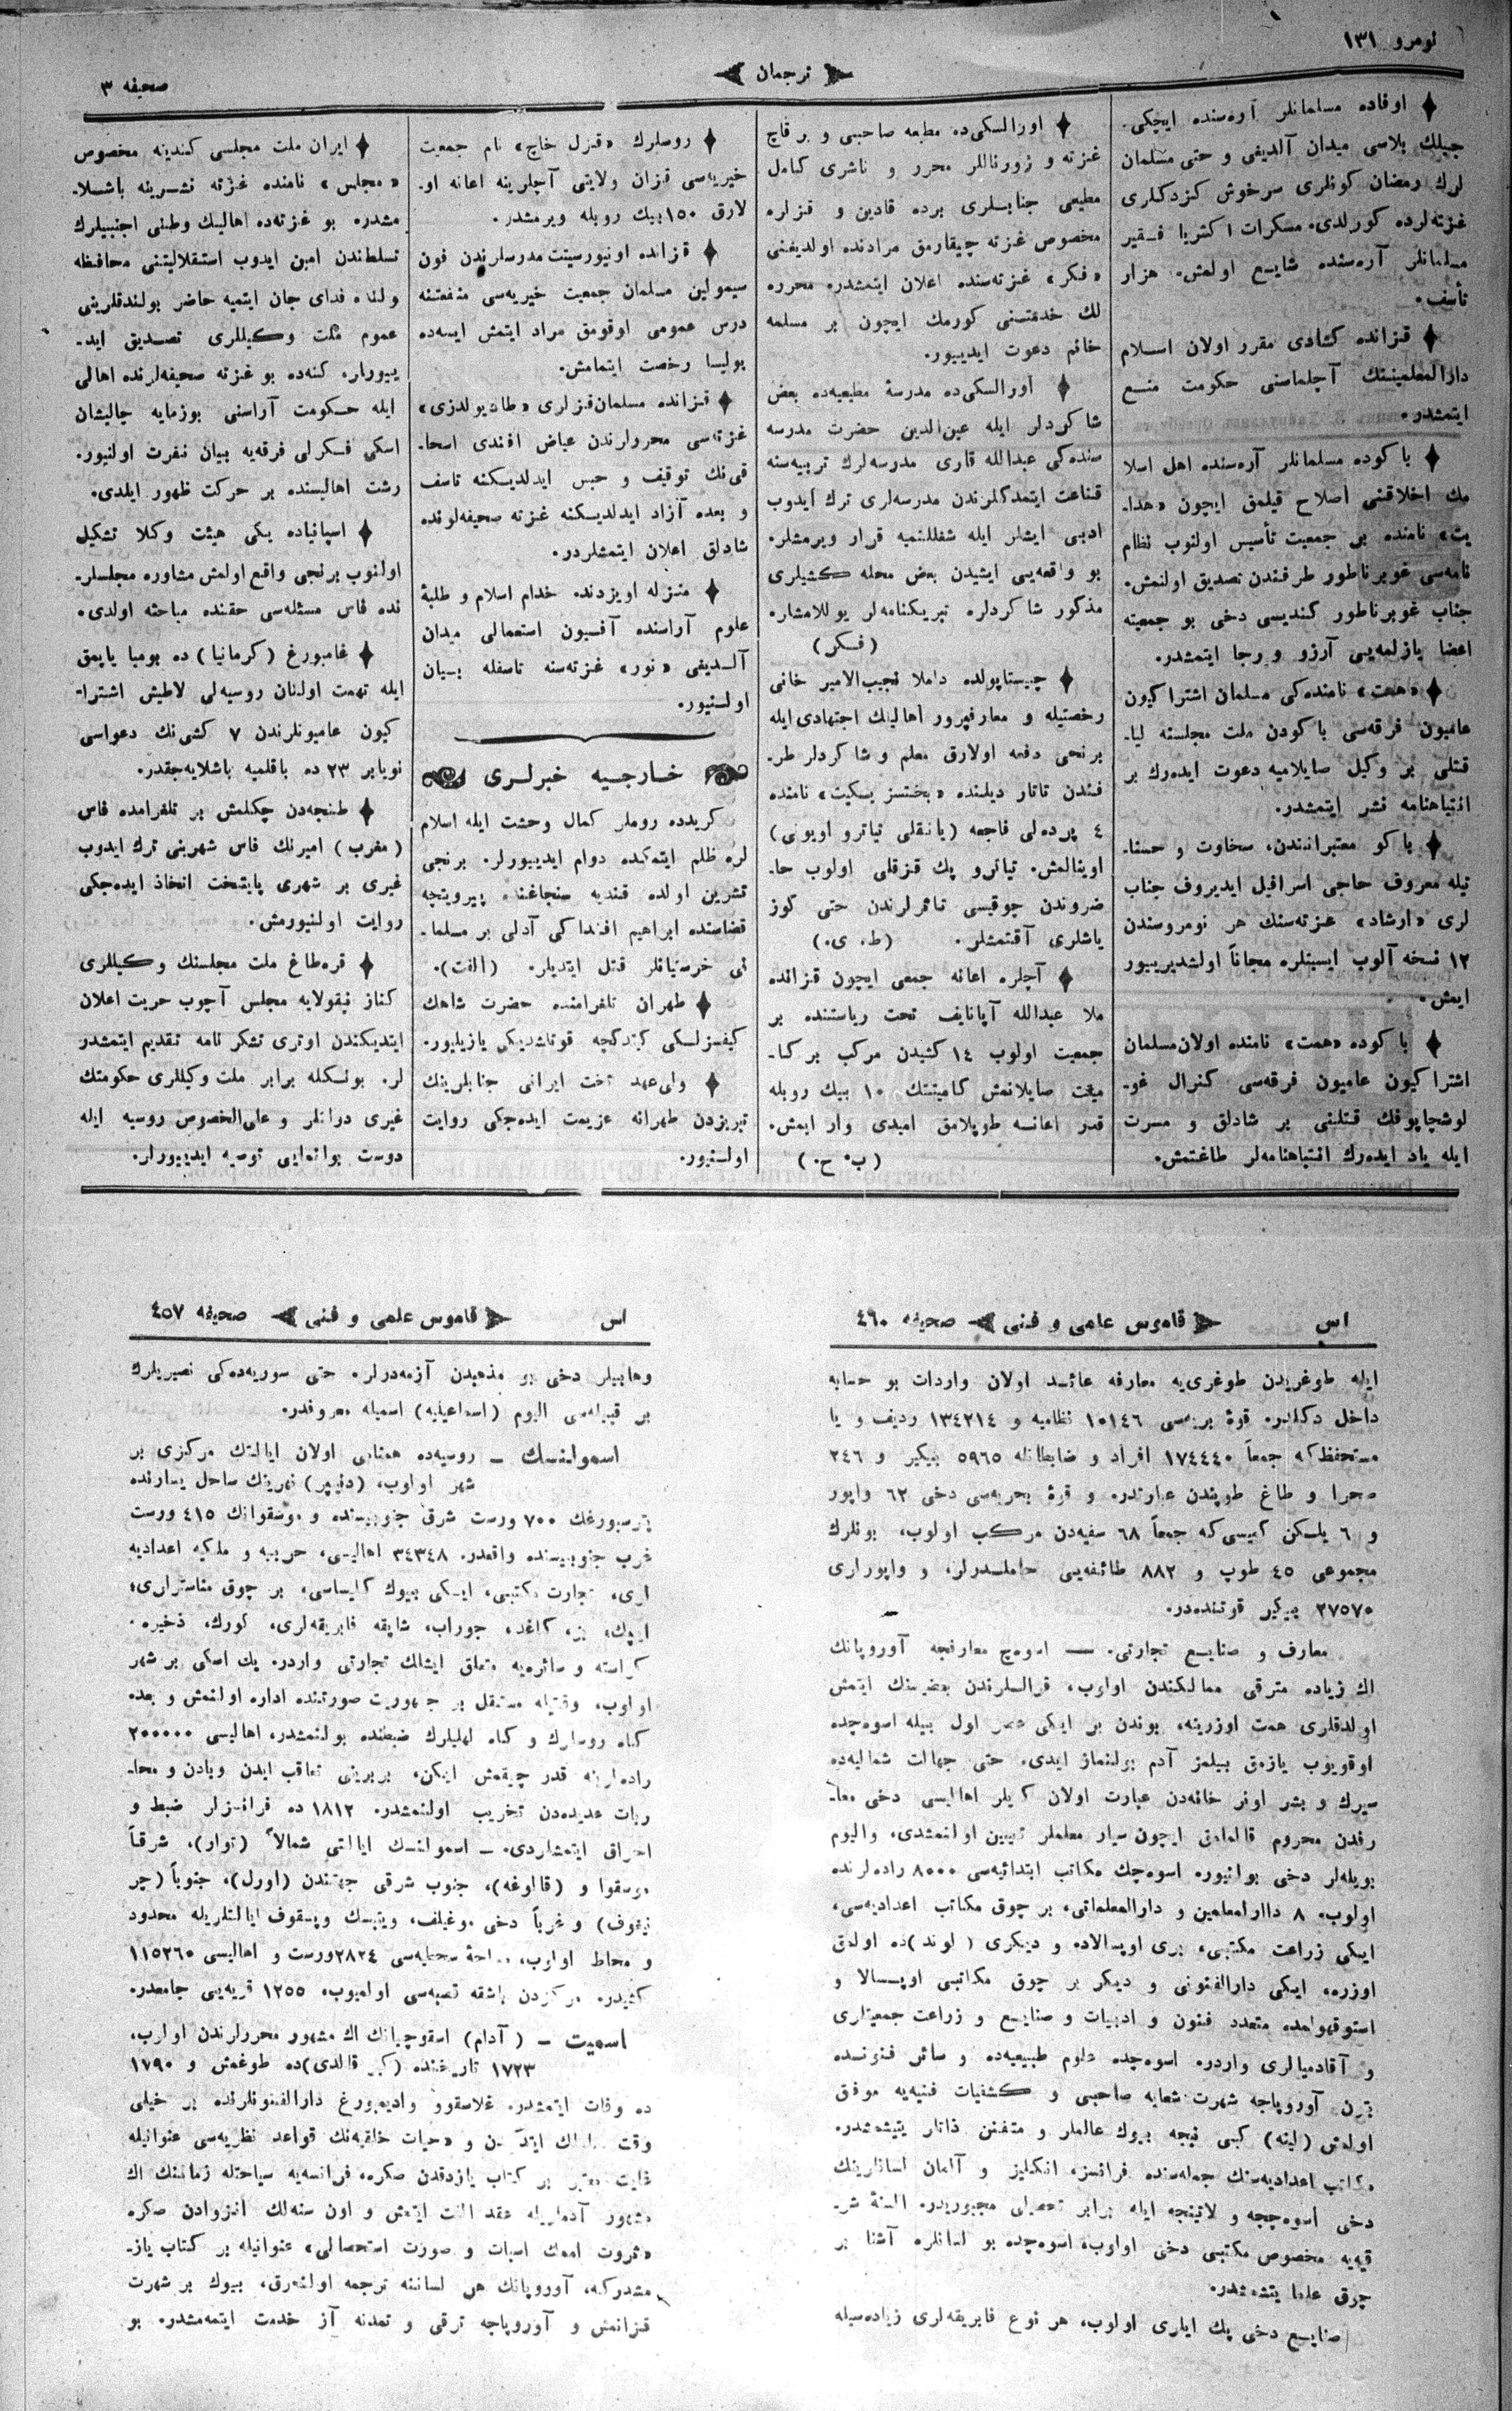 نومرو ١٣١
ترجمان
صحیفه ٣
اوفاده مسلمانلر آره‌سنده ایچكی-
جیلك بلاسی میدان آلدیغی و حتی مسلمان
لرك رمضان كونلری سرخوش كزدكلری
غزته‌لرده كورلدی. مسكرات اكثریا فقیر
مسلمانلر آره‌سنده شایع اولمش. هزار
تأسف.
قزانده كشادی مقرر اولان اسلام
دارالمعلمیننك آچلماسنی حكومت منع
ایتمشدر.
باكوده مسلمانلر آره‌سنده اهل اسلا
مك اخلاقنی اصلاح قیلمق ایچون «هدا-
یت» نامنده بر جمعیت تأسیس اولنوب نظام
نامه‌سی غوبرناطور طرفندن تصدیق اولنمش.
جناب غوبرناطور كندیسی دخی بو جمعیته
اعضا یازلمه‌یی آرزو و رجا ایتمشدر.
«همت» نامنده‌كی مسلمان اشتراكیون
عامیون فرقه‌سی باكودن ملت مجلسنه لیا-
قتلی بر وكیل صایلامیه دعوت ایده‌رك بر
انتباهنامه نشر ایتمشدر.
باكو معتبراندن، سخاوت و حسنا-
تیله معروف حاجی اسرافیل ایدیروف جناب
لری «ارشاد» غزته‌سنك هر نومروسندن
١٢ نسخه آلوب ایسینلره مجاناً اولشدیرییور
ایمش.
باكوده «همت» نامنده اولان مسلمان
اشتراكیون عامیون فرقه‌سی كنرال غو-
لوشچاپوفك قتلنی بر شادلق و مسرت
ایله یاد ایده‌رك انتباهنامه‌لر طاغتمش.
اورالسكی‌ده مطبعه صاحبی و بر قاچ
غزته و ژورناللر محرر و ناشری كامل
مطیعی جنابلری برده قادین و قزلره
مخصوص غزته چیقارمق مرادنده اولدیغنی
«فكر» غزته‌سنده اعلان ایتمشدر. محرره
لك خدمتنی كورمك ایچون بر مسلمه
خانم دعوت ایدییور.
اورالسكی‌ده مدرسهٔ مطیعیه‌ده بعض
شاكردلر ایله عین‌الدین حضرت مدرسه
سنده‌كی عبدالله قاری مدرسه‌لرك تربیه‌سنه
قناعت ایتمدكلرندن مدرسه‌لری ترك ایدوب
ادبی ایشلر ایله شغللنمیه قرار ویرمشلر.
بو واقعه‌یی ایشیدن بعض محله كشیلری
مذكور شاكردلره تبریكنامه‌لر یوللامشلر.
(فكر)
چیستاپولده داملا نجیب الامیر خانی
رخصتیله و معارفپرور اهالینك اجتهادی ایله
برنجی دفعه اولارق معلم و شاكردلر طر-
فندن تاتار دیلنده «بختسز یكیت» نامنده
٤ پرده‌لی فاجعه (یانقلی تیاترو اویونی)
اوینالمش. تیاترو پك قزقلی اولوب حا-
ضروندن چوقیسی تاثرلرندن حتی كوز
یاشلری آقتمشلر. (ط. ی.)
آچلره اعانه جمعی ایچون قزانده
ملا عبدالله آپانایف تحت ریاستنده بر
جمعیت اولوب ١٤ كشیدن مركب بر كا-
میتت صایلانمش كامیتتك ١٠ بیك روبله
قدر اعانه طوپلامق امیدی وار ایمش.
(ب. ح.)
روسلرك «قزل خاچ» نام جمعیت
خیریه‌سی قزان ولایتی آچلرینه اعانه او-
لارق ١٥٠ بیك روبله ویرمشدر.
قزانده اونیورسیتت مدرسلرندن فون
سیمولین مسلمان جمعیت خیریه‌سی منفعتنه
درس عمومی اوقومق مراد ایتمش ایسه‌ده
پولیسا رخصت ایتمامش.
قزانده مسلمان قزلری «طاك یولدزی»
غزته‌سی محررلرندن عیاض افندی اسحا-
قی‌نك توقیف و حبس ایدلدیكنه تاسف
و بعده آزاد ایدلدیكنه غزته صحیفه‌لرنده
شادلق اعلان ایتمشلردر.
منزله اویزدنده خدام اسلام و طلبهٔ
علوم آراسنده آفیون استعمالی میدان
آلدیغی «نور» غزته‌سنه تاسفله بیان
اولنیور.
خارجیه خبرلری
كریدده روملر كمال وحشت ایله اسلام
لره ظلم ایتمكده دوام ایدییورلر. برنجی
تشرین اولده قندیه سنجاغنده پیرویتچه
قضاسنده ابراهیم افنداكی آدلی بر مسلما-
نی خرستیانلر قتل ایتدیلر. (الفت).
طهران تلغرامنده حضرت شاهك
كیفسزلكی كیتدكچه قوتلشدیكی یازیلیور.
ولی‌عهد تخت ایرانی جنابلرینك
تبریزدن طهرانه عزیمت ایده‌جكی روایت
اولنیور.
ایران ملت مجلسی كندینه مخصوص
«مجلس» نامنده غزته نشرینه باشلا-
مشدر. بو غزته‌ده اهالینك وطنی اجنبیلرك
تسلطندن امین ایدوب استقلالیتنی محافظه
ولنده فدای جان ایتمیه حاضر بولندقلرینی
عموم ملت وكیللری تصدیق اید-
ییورلر. كنه‌ده بو غزته صحیفه‌لرنده اهالی
ایله حكومت آراسنی بوزمایه چالیشان
اسكی فكرلی فرقه‌یه بیان نفرت اولنیور.
رشت اهالیسنده بر حركت ظهور ایلدی.
اسپانیاده یكی هیئت وكلا تشكیل
اولنوب برنجی واقع اولمش مشاوره مجلسلر-
نده فاس مسئله‌سی حقنده مباحثه اولدی.
غامبورغ (كرمانیا) ده بومبا یاپمق
ایله تهمت اولنان روسیه‌لی لاطیش اشترا-
كیون عامیونلرندن ٧ كشی‌نك دعواسی
نویابر ٢٣ ده باقلمیه باشلایه‌جقدر.
طنجه‌دن چكلمش بر تلغرامده فاس
(مغرب) امیرنك فاس شهرینی ترك ایدوب
غیری بر شهری پایتخت اتخاذ ایده‌جكی
روایت اولنیورمش.
قره‌طاغ ملت مجلسنك وكیللری
كناز نیقولایه مجلس آچوب حریت اعلان
ایتدیكندن اوتری تشكر نامه تقدیم ایتمشدر
لر. بونكله برابر ملت وكیللری حكومتك
غیری دولتلر و علی‌الخصوص روسیه ایله
دوست بولنمایی توصیه ایدییورلر.
اس قاموس علمی و فنی صحیفه ٤٦٠
ایله طوغریدن طوغری‌یه معارفه عائد اولان واردات بو حسابه
داخل دكلدر. قوهٔ بریه‌سی ١٠١٤٦ نظامیه و ١٣٤٢١٤ ردیف و یا
مستحفظ كه جمعاً ١٧٤٤٤٠ افراد و ضابطانله ٥٩٦٥ بیكیر و ٢٤٦
صحرا و طاغ طوپندن عبارتدر. و قوهٔ بحریه‌سی دخی ٦٢ واپور
و ٦ یلكن كمیسی كه جمعاً ٦٨ سفیه‌دن مركب اولوب، بونلرك
مجموعی ٤٥ طوپ و ٨٨٢ طائفه‌یی حاملدرلر، و واپورلری
٢٧٥٧٠ بیكیر قوتنده‌در.
معارف و صنایع تجارتی. — اسوه‌چ معارفجه آوروپانك
اك زیاده مترقی ممالكندن اولوب، قراللرندن بعضیسنك ایتمش
اولدقلری همت اوزرینه، بوندن بر ایكی عصر اول بیله اسوه‌چده
اوقویوب یازمق بیلمز آدم بولنماز ایدی. حتی جهات شمالیه‌ده
سیرك و بشر اونر خانه‌دن عبارت اولان كویلر اهالیسی دخی معا-
رفدن محروم قالمامق ایچون سیار معلملر تعیین اولنمشدی، والیوم
بویله‌لر دخی بولنیور. اسوه‌چك مكاتب ابتدائیه‌سی ٨٠٠٠ راده‌لرنده
اولوب، ٨ دارالمعلمین و دارالمعلماتی، بر چوق مكاتب اعدادیه‌سی،
ایكی زراعت مكتبی، بری اوپسالاده و دیكری (لوند)ده اولمق
اوزره، ایكی دارالفنونی و دیكر بر چوق مكاتبی اوپسالا و
استوقهولمده متعدد فنون و ادبیات و صنایع و زراعت جمعیتلری
و آقادمیالری واردر. اسوه‌چده علوم طبیعیه‌ده و سائر فنونده
بتون آوروپاجه شهرت شعابه صاحبی و كشفیات فنیه‌یه موفق
اولمش (لینه) كبی نیجه بیوك عالملر و متفنن ذاتلر یتیشمشدر.
مكاتب اعدادیه‌سنك جمله‌سنده فرانسز، انكلیز و آلمان لسانلرینك
دخی اسوه‌چجه و لاتینجه ایله برابر تحصیلی مجبوریدر. السنهٔ شر-
قیه‌یه مخصوص مكتبی دخی اولوب، اسوه‌چده بو لسانلره آشنا بر
چوق علما یتشمشدر.
صنایع دخی پك ایلری اولوب، هر نوع فابریقه‌لری زیاده‌سیله
اس قاموس علمی و فنی صحیفه ٤٥٧
وهابیلر دخی بو مذهبدن آزمه‌درلر. حتی سوریه‌ده‌كی نصیریلرك
بر قبیله‌سی الیوم (اسماعیلیه) اسمیله معروفدر.
اسمولنسك – روسیه‌ده همنامی اولان ایالتك مركزی بر
شهر اولوب، (دنیپر) نهرینك ساحل یسارنده
پترسبورغك ٧٠٠ ورست شرق جنوبیسنده و موسقوانك ٤١٥ ورست
غرب جنوبیسنده واقعدر. ٣٤٣٤٨ اهالیسی، حربیه و ملكیه اعدادیه
لری، تجارت مكتبی، ایكی بیوك كلیساسی، بر چوق مناستراری،
ایپك، بز، كاغد، جوراب، شاپقه فابریقه‌لری، كورك، ذخیره،
كراسته و سائره‌یه متعلق ایشلك تجارتی واردر. پك اسكی بر شهر
اولوب، وقتیله مستقل بر جمهوریت صورتنده اداره اولنمش و بعده
كاه روسلرك و كاه لهلیلرك ضبطنده بولنمشدر، اهالیسی ٢٠٠٠٠٠
راده‌لرینه قدر چیقمش ایكن، بربرینی تعاقب ایدن وبادن و محا-
ربات عدیده‌دن تخریب اولنمشدر. ١٨١٢ ده فرانسزلر ضبط و
احراق ایتمشلردی. – اسمولنسك ایالتی شمالاً (توار)، شرقاً
موسقوا و (قالوغه)، جنوب شرقی جهتندن (اورل)، جنوباً (چر
نیغوف) و غرباً دخی موغیلف، ویتبسك وپسقوف ایالتلریله محدود
و محاط اولوب، مساحهٔ سطحیه‌سی ٢٨٢٤ ورست و اهالیسی ١١٥٢٦٠
كشیدر. مركزدن باشقه قصبه‌سی اولمیوب، ١٢٥٥ قریه‌یی جامعدر.
اسمیت – (آدام) اسقوچیانك اك مشهور محررلرندن اولوب،
١٧٢٣ تاریخنده (كیرقالدی)ده طوغمش و ١٧٩٠
ده وفات ایتمشدر. غلاسقوو وادیمبورغ دارالفنونلرنده بر خیلی
وقت و «حیات خلقیه‌نك قواعد نظریه‌سی عنوانیله
غایت معتبر بر كتاب یازدقدن صكره، فرانسه‌یه سیاحتله زماننك اك
مشهور آدملریله عقد الفت ایتمش و اون سنه‌لك انزوادن صكره
«ثروت امك اسبات و صورت استحصالی» عنوانیله بر كتاب یاز-
مشدركه، آوروپانك هر لساننه ترجمه اولنه‌رق، بیوك بر شهرت
قزانمش و آوروپاجه ترقی و تمدنه آز خدمت ایتمه‌مشدر. بو